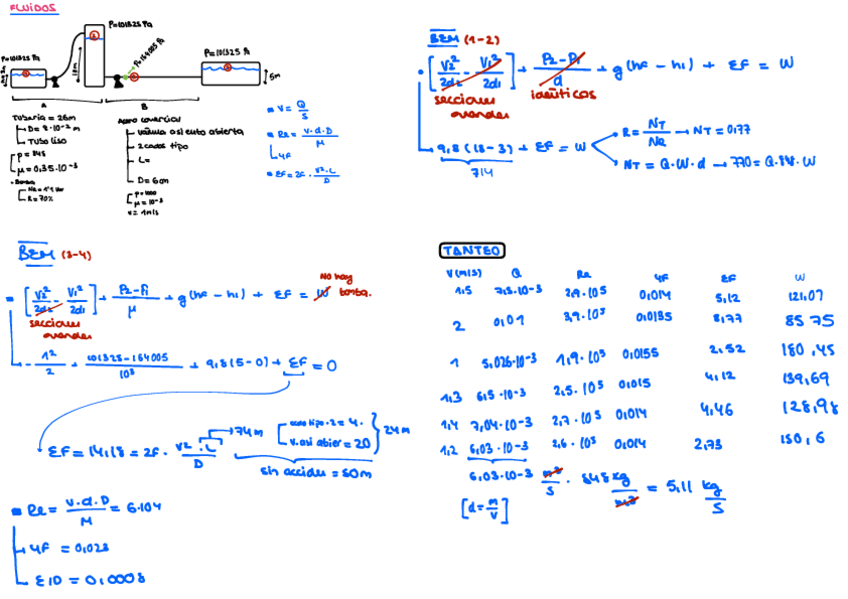 FLUIDOS
P=101325 Pa
P=101325 Pa
P=164005 Pa
P=101325 Pa
5m
A
B
Tubería = 26m
D= 8·10⁻² m
Tubo liso
ρ= 848
μ= 0,35·10⁻³
R= 70%
Acero comercial
válvula asiento abierta
2 codos tipo
L=
D= 6cm
ρ=1000
μ= 10⁻³
v= 1m/s
V= Q/S
Re= v·d·D/μ
4F
EF= 2F· V²·L/D
BEM (1-2)
[V2²/2α2 - V1²/2α1] + P2-P1/d + g(hF-h1) + EF = W
secciones grandes
idénticos
9,8(18-3) + EF = W
714
R= NT/Ne → NT= 0,77
NT= Q·W·d → 770= Q·848·W
BEM (3-4)
No hay bomba.
[V2²/2α2 - V1²/2α1] + P2-P1/μ + g(hF-h1) + EF = W
secciones grandes
- 1²/2 + 101325-164005/10³ + 9,8(5-0) + EF = 0
EF= 14,18= 2F· V²·L/D
74m
codo tipo·2= 4·
v.asi abier= 20
24m
sin accides = 50m
Re= v·d·D/μ = 6·10⁴
4F = 0,023
E/D = 0,0008
TANTEO
V(m/s) Q Re 4F EF W
1,5 7,5·10⁻³ 2,9·10⁵ 0,014 5,12 121,07
2 0,01 3,9·10⁵ 0,0135 8,77 85 75
1 5,026·10⁻³ 1,9·10⁵ 0,0155 2,52 180,45
1,3 6,5·10⁻³ 2,5·10⁵ 0,015 4,12 139,69
1,4 7,04·10⁻³ 2,7·10⁵ 0,014 4,46 128,98
1,2 6,03·10⁻³ 2,6·10⁵ 0,014 2,73 150,6
6,03·10⁻³ m³/s · 848 kg/m³ = 5,11 kg/s
[d= m/V]